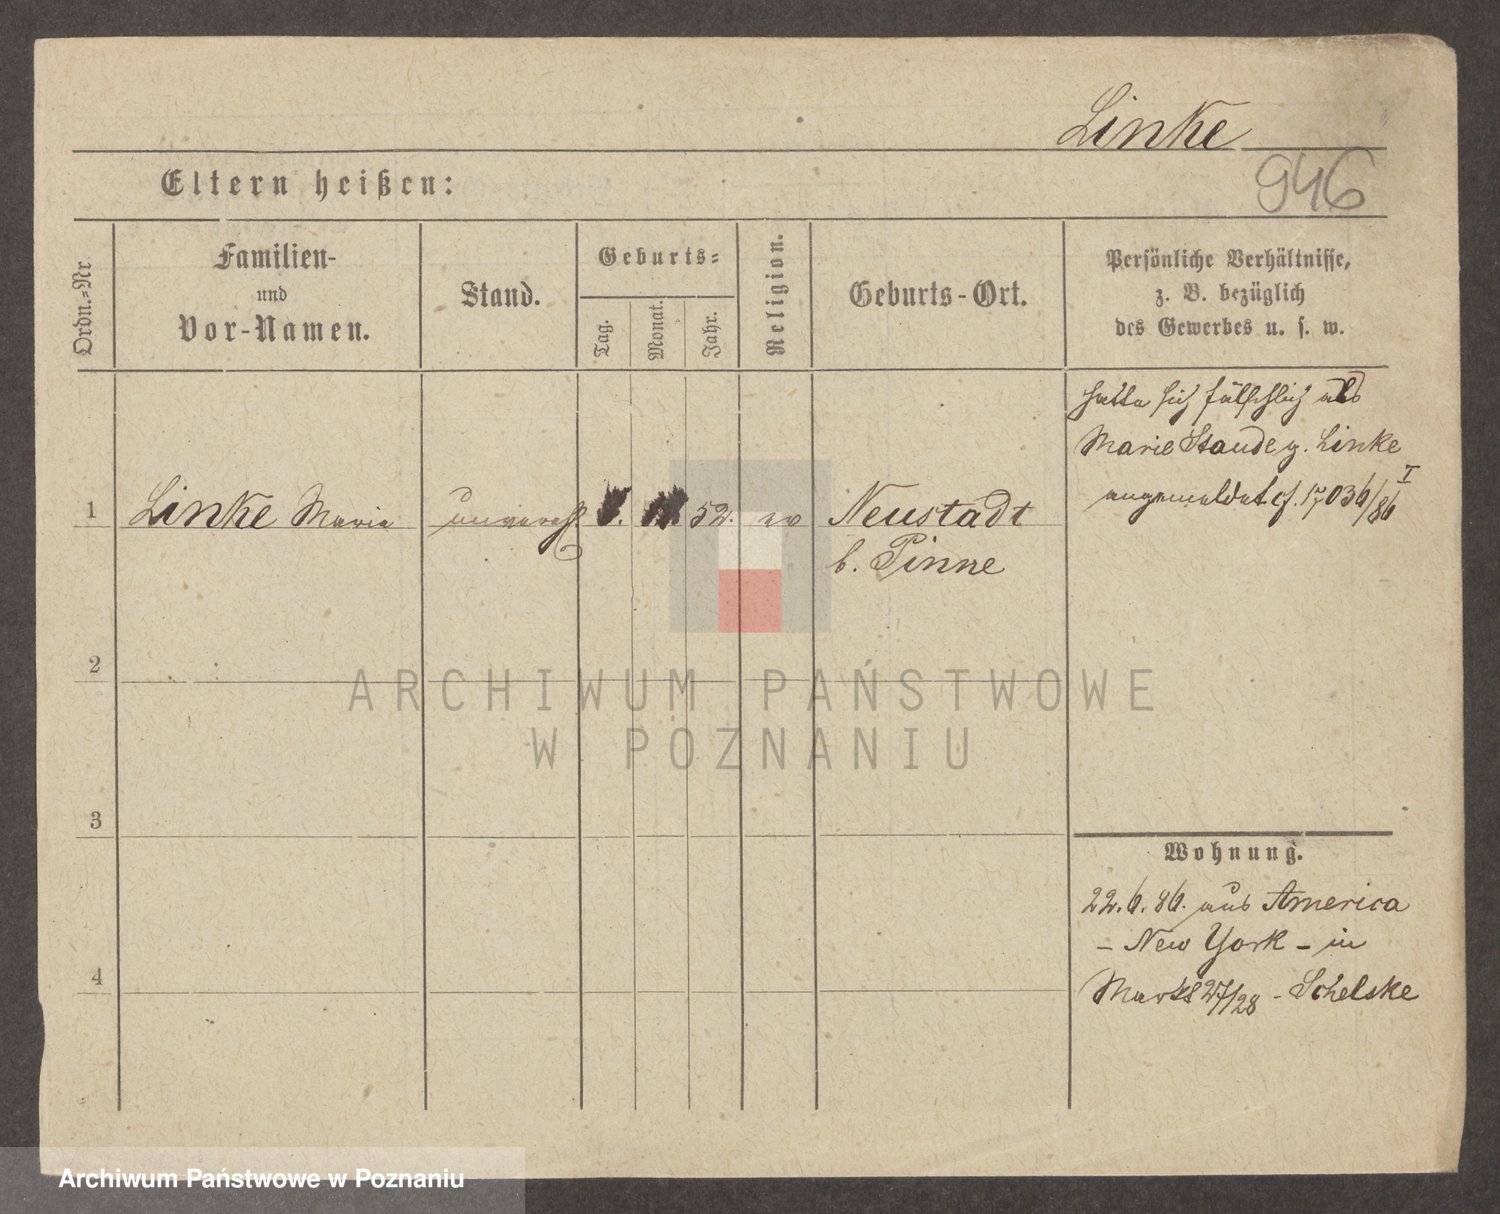 Linke
946
Eltern heißen:
Ordn.=Nr
Familien-
und
Vor-Namen.
Stand.
Geburts=
Tag.
Monat.
Jahr.
Religion.
Geburts-Ort.
Persönliche Verhältnisse,
z. B. bezüglich
des Gewerbes u. s. w.
hatte sich fälschlich als
Marie Staude g. Linke
angemeldet cf. 17036/86 I
1 Linke Marie unvereh 52. ev Neustadt
b. Pinne
2
3
4
Wohnung.
22.6.86. aus America
– New York – in
27/28 - Schelske
ARCHIWUM PAŃSTWOWE
W POZNANIU
Archiwum Państwowe w Poznaniu